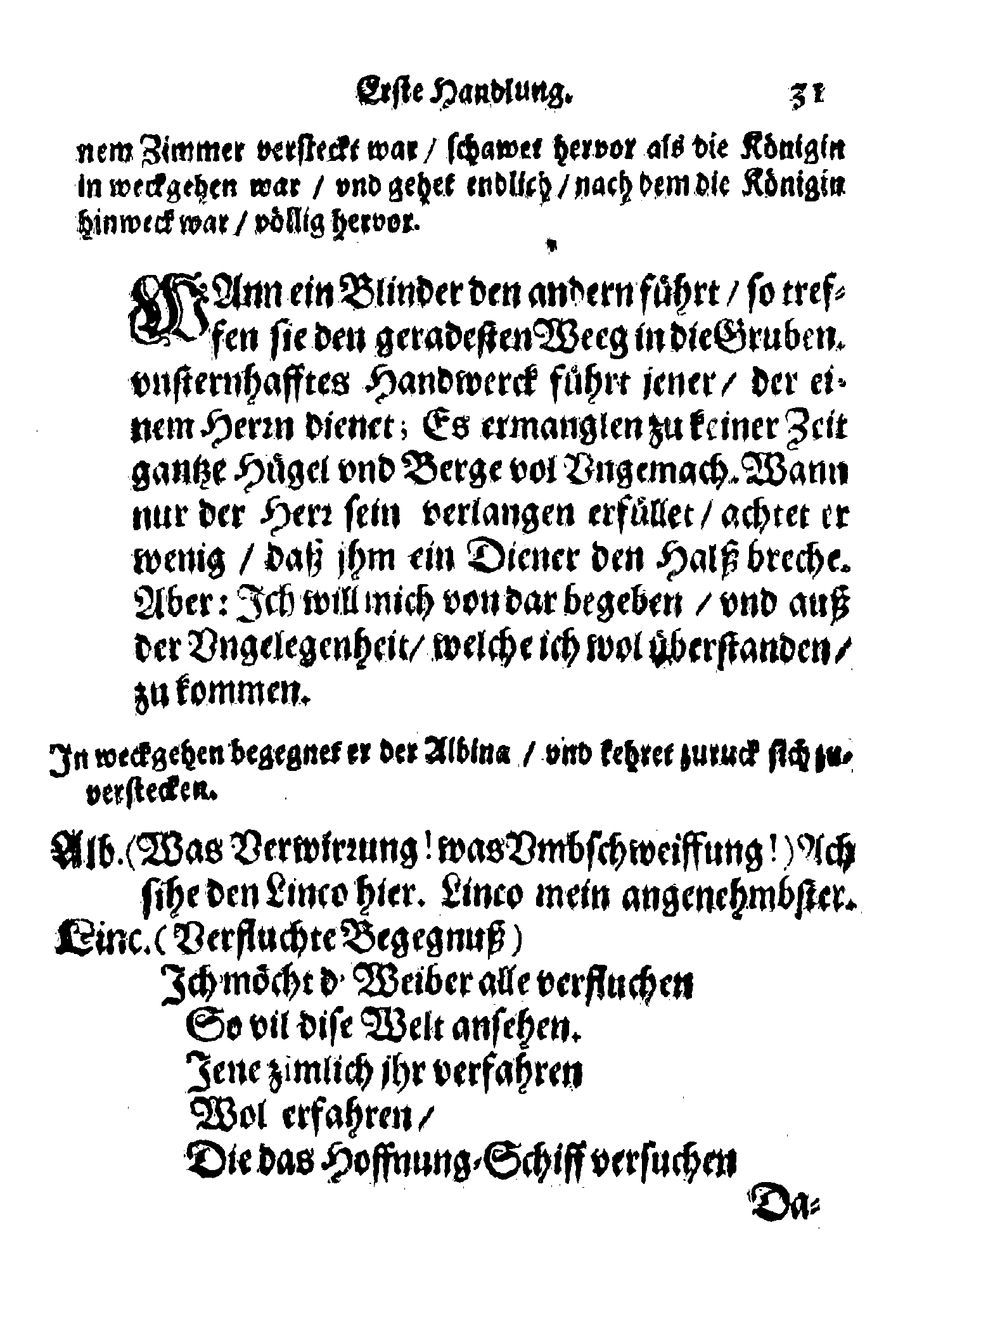 Erste Handlung. 31
nem Zimmer versteckt war / schawet hervor als die Königin
in weckgehen war / vnd gehet endlich / nach dem die Königin
hinweck war / völlig hervor.
WAnn ein Blinder den andern führt / so tref-
fen sie den geradesten Weeg in die Gruben.
vnsternhafftes Handwerck führt jener / der ei-
nem Herrn dienet; Es ermanglen zu keiner Zeit
gantze Hügel vnd Berge vol Vngemach. Wann
nur der Herr sein verlangen erfüllet / achtet er
wenig / daß jhm ein Diener den Halß breche.
Aber: Ich will mich von dar begeben / vnd auß
der Vngelegenheit / welche ich wol überstanden /
zu kommen.
In weckgehen begegnet er der Albina / vnd kehret zuruck sich zu-
verstecken.
Alb. (Was Verwirrung! was Vmbschweiffung!) Ach
sihe den Linco hier. Linco mein angenehmbster.
Linc. (Verfluchte Begegnuß)
Ich möcht d' Weiber alle verfluchen
So vil dise Welt ansehen.
Jene zimlich jhr verfahren
Wol erfahren /
Die das Hoffnung-Schiff versuchen
Da-